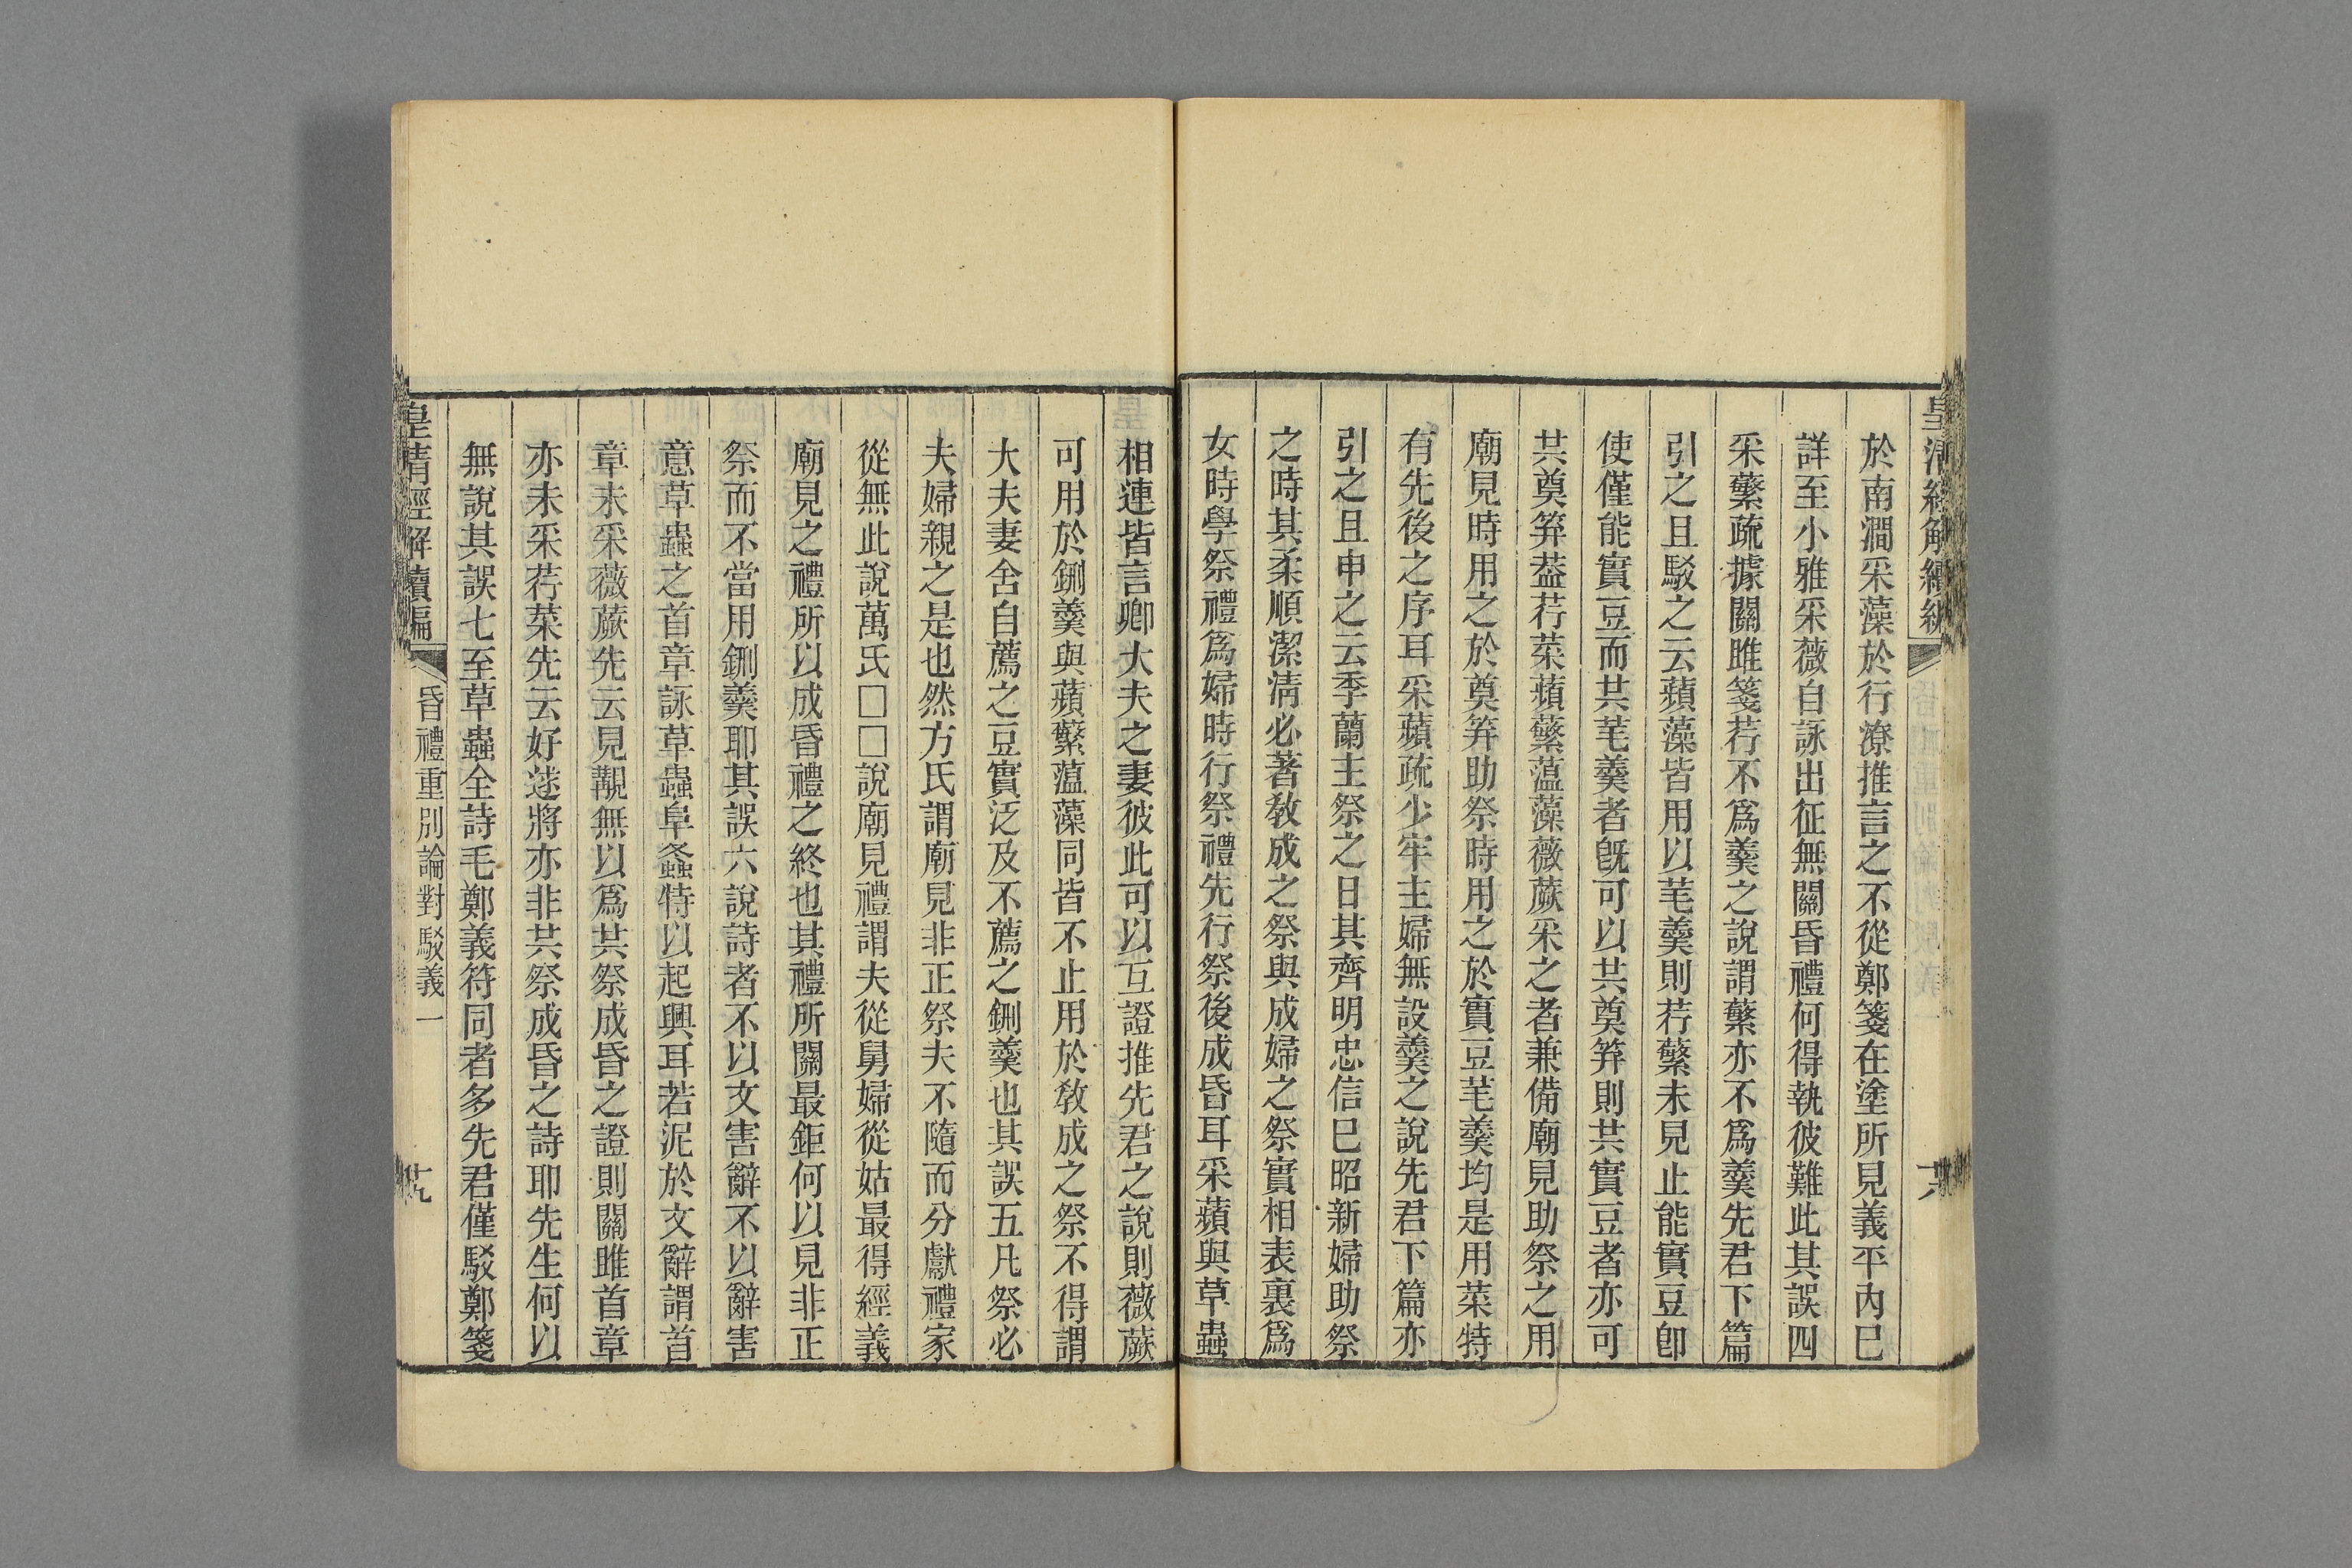 皇清經解續編
於南澗采藻於行潦推言之不從鄭箋在塗所見義平內巳
詳至小雅采薇白詠出征無關昏禮何得執彼難此其誤四
采蘩疏據關雎箋荇不爲羹之說謂蘩亦不爲羹先君下篇
引之且駁之云蘋藻皆用以芼羹則荇蘩未見止能實豆卽
使僅能實豆而共芼羹者旣可以共奠筓則共實豆者亦可
共奠筓葢荇菜蘋蘩薀藻薇蕨采之者兼備廟見助祭之用
廟見時用之於奠筓助祭時用之於實豆芼羹均是用菜特
有先後之序耳采蘋疏少牢主婦無設羹之說先君下篇亦
引之且申之云季蘭主祭之日其齊明忠信巳昭新婦助祭
之時其柔順潔淸必著敎成之祭與成婦之祭實相表裏爲
女時學祭禮爲婦時行祭禮先行祭後成昏耳采蘋與草蟲
相連皆言卿大夫之妻彼此可以互證推先君之說則薇蕨
可用於鉶羹與蘋蘩薀藻同皆不止用於敎成之祭不得謂
大夫妻舍自薦之豆實泛及不薦之鉶羹也其誤五凡祭必
夫婦親之是也然方氏謂廟見非正祭夫不隨而分獻禮家
從無此說萬氏□□說廟見禮謂夫從舅婦從姑最得經義
廟見之禮所以成昏禮之終也其禮所關最鉅何以見非正
祭而不當用鉶羹耶其誤六說詩者不以文害辭不以辭害
意草蟲之首章詠草蟲阜螽特以起興耳若泥於文辭謂首
章未采薇蕨先云見覯無以爲共祭成昏之證則關雎首章
亦未采荇菜先云好逑將亦非共祭成昏之詩耶先生何以
無說其誤七至草蟲全詩毛鄭義符同者多先君僅駁鄭箋
皇清經解續編
昏禮重別論對駁義一